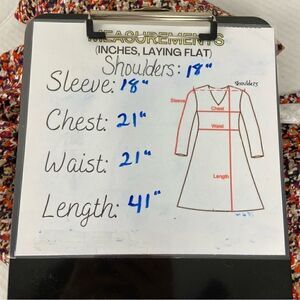 MEASUREMENTS
(INCHES, LAYING FLAT)
Shoulders: 18"
Sleeve: 18"
Chest: 21"
Waist: 21"
Length: 41"
Shoulders
Sleeve
Chest
Waist
Length